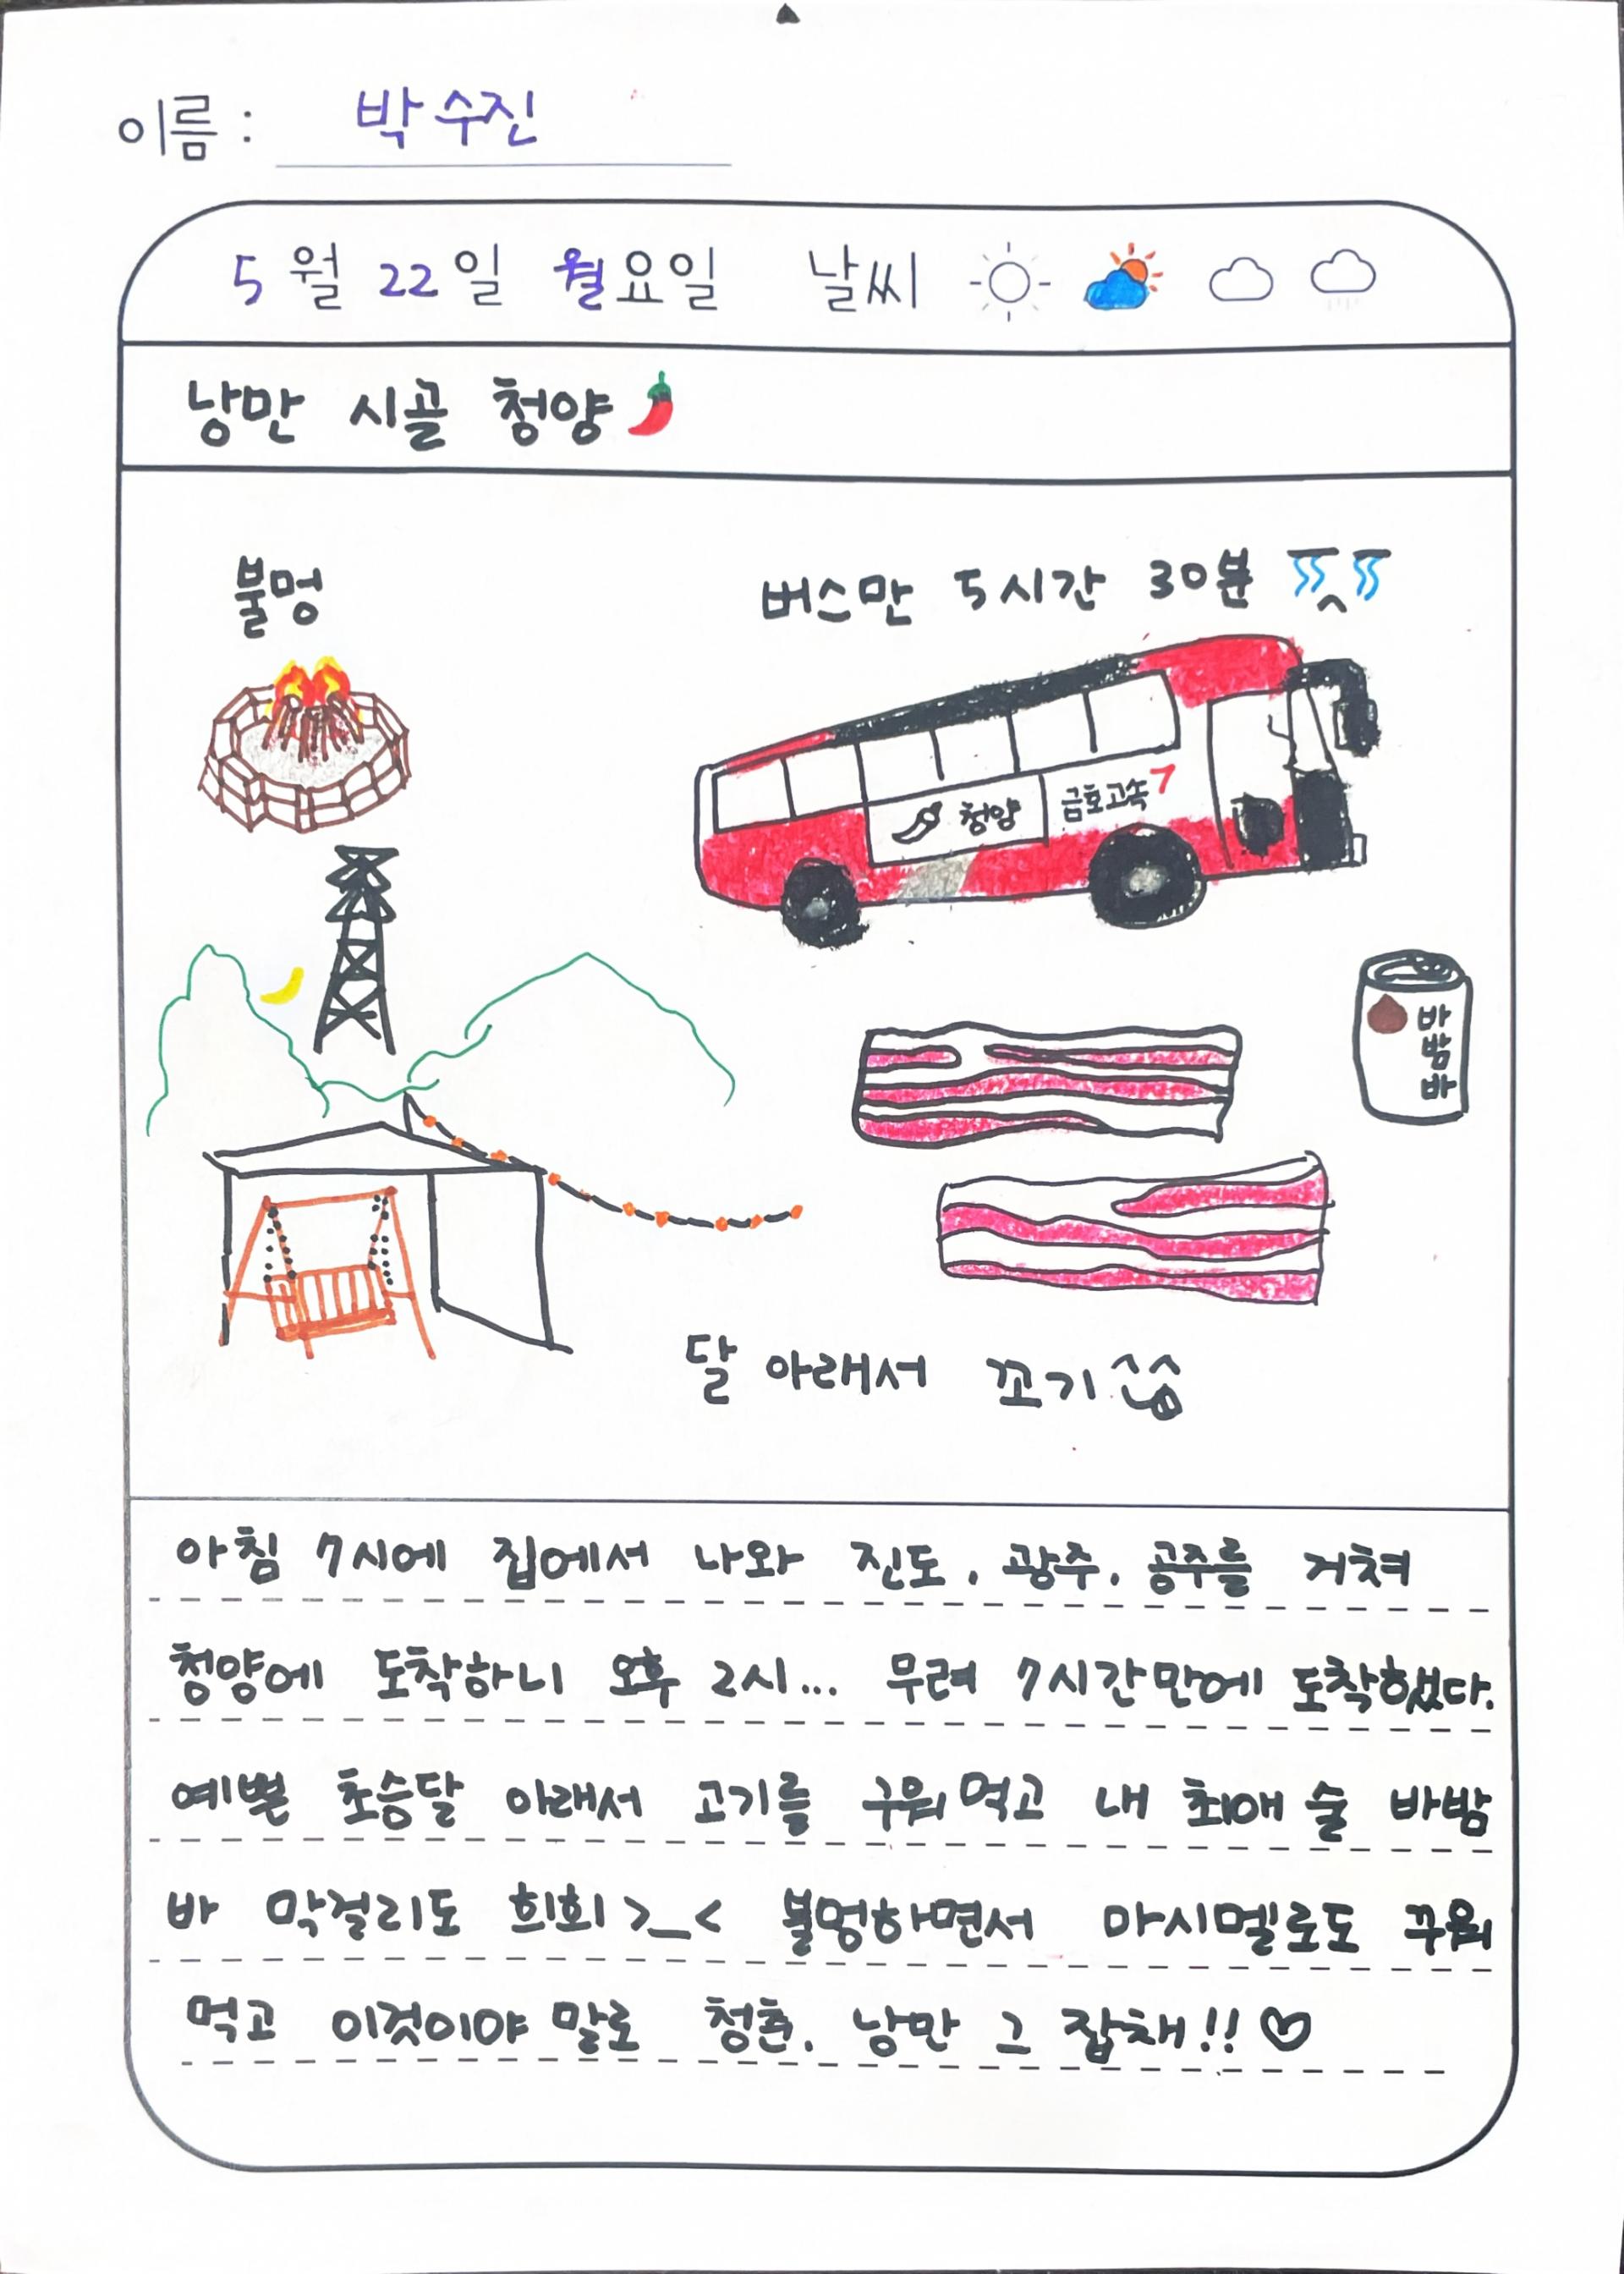 이름 : 박수진
5월 22일 월요일 날씨
낭만 시골 청양
불멍
버스만 5시간 30분 ㅠㅠ
청양 금호고속7
바
밤
바
달 아래서 꼬기
아침 7시에 집에서 나와 진도, 광주, 공주를 거쳐
청양에 도착하니 오후 2시... 무려 7시간만에 도착했다.
예쁜 초승달 아래서 고기를 구워먹고 내 최애 술 바밤
바 막걸리도 희희 >_< 불멍하면서 마시멜로도 꾸워
먹고 이것이야 말로 청춘, 낭만 그 잡채!! ♡